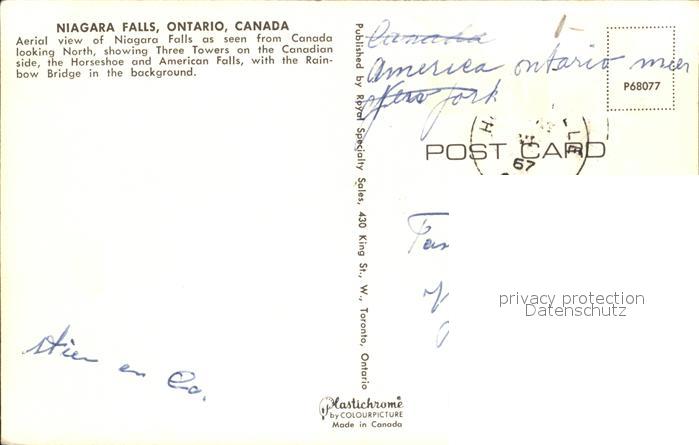 NIAGARA FALLS, ONTARIO, CANADA
Aerial view of Niagara Falls as seen from Canada
looking North, showing Three Towers on the Canadian
side, the Horseshoe and American Falls, with the Rain-
bow Bridge in the background.
Published by Royal Specialty Sales, 430 King St., W., Toronto, Ontario
Canada
America ontario meer
New york
P68077
POST CARD
67
privacy protection
Datenschutz
stien en Co.
Plastichrome
by COLOURPICTURE
Made in Canada